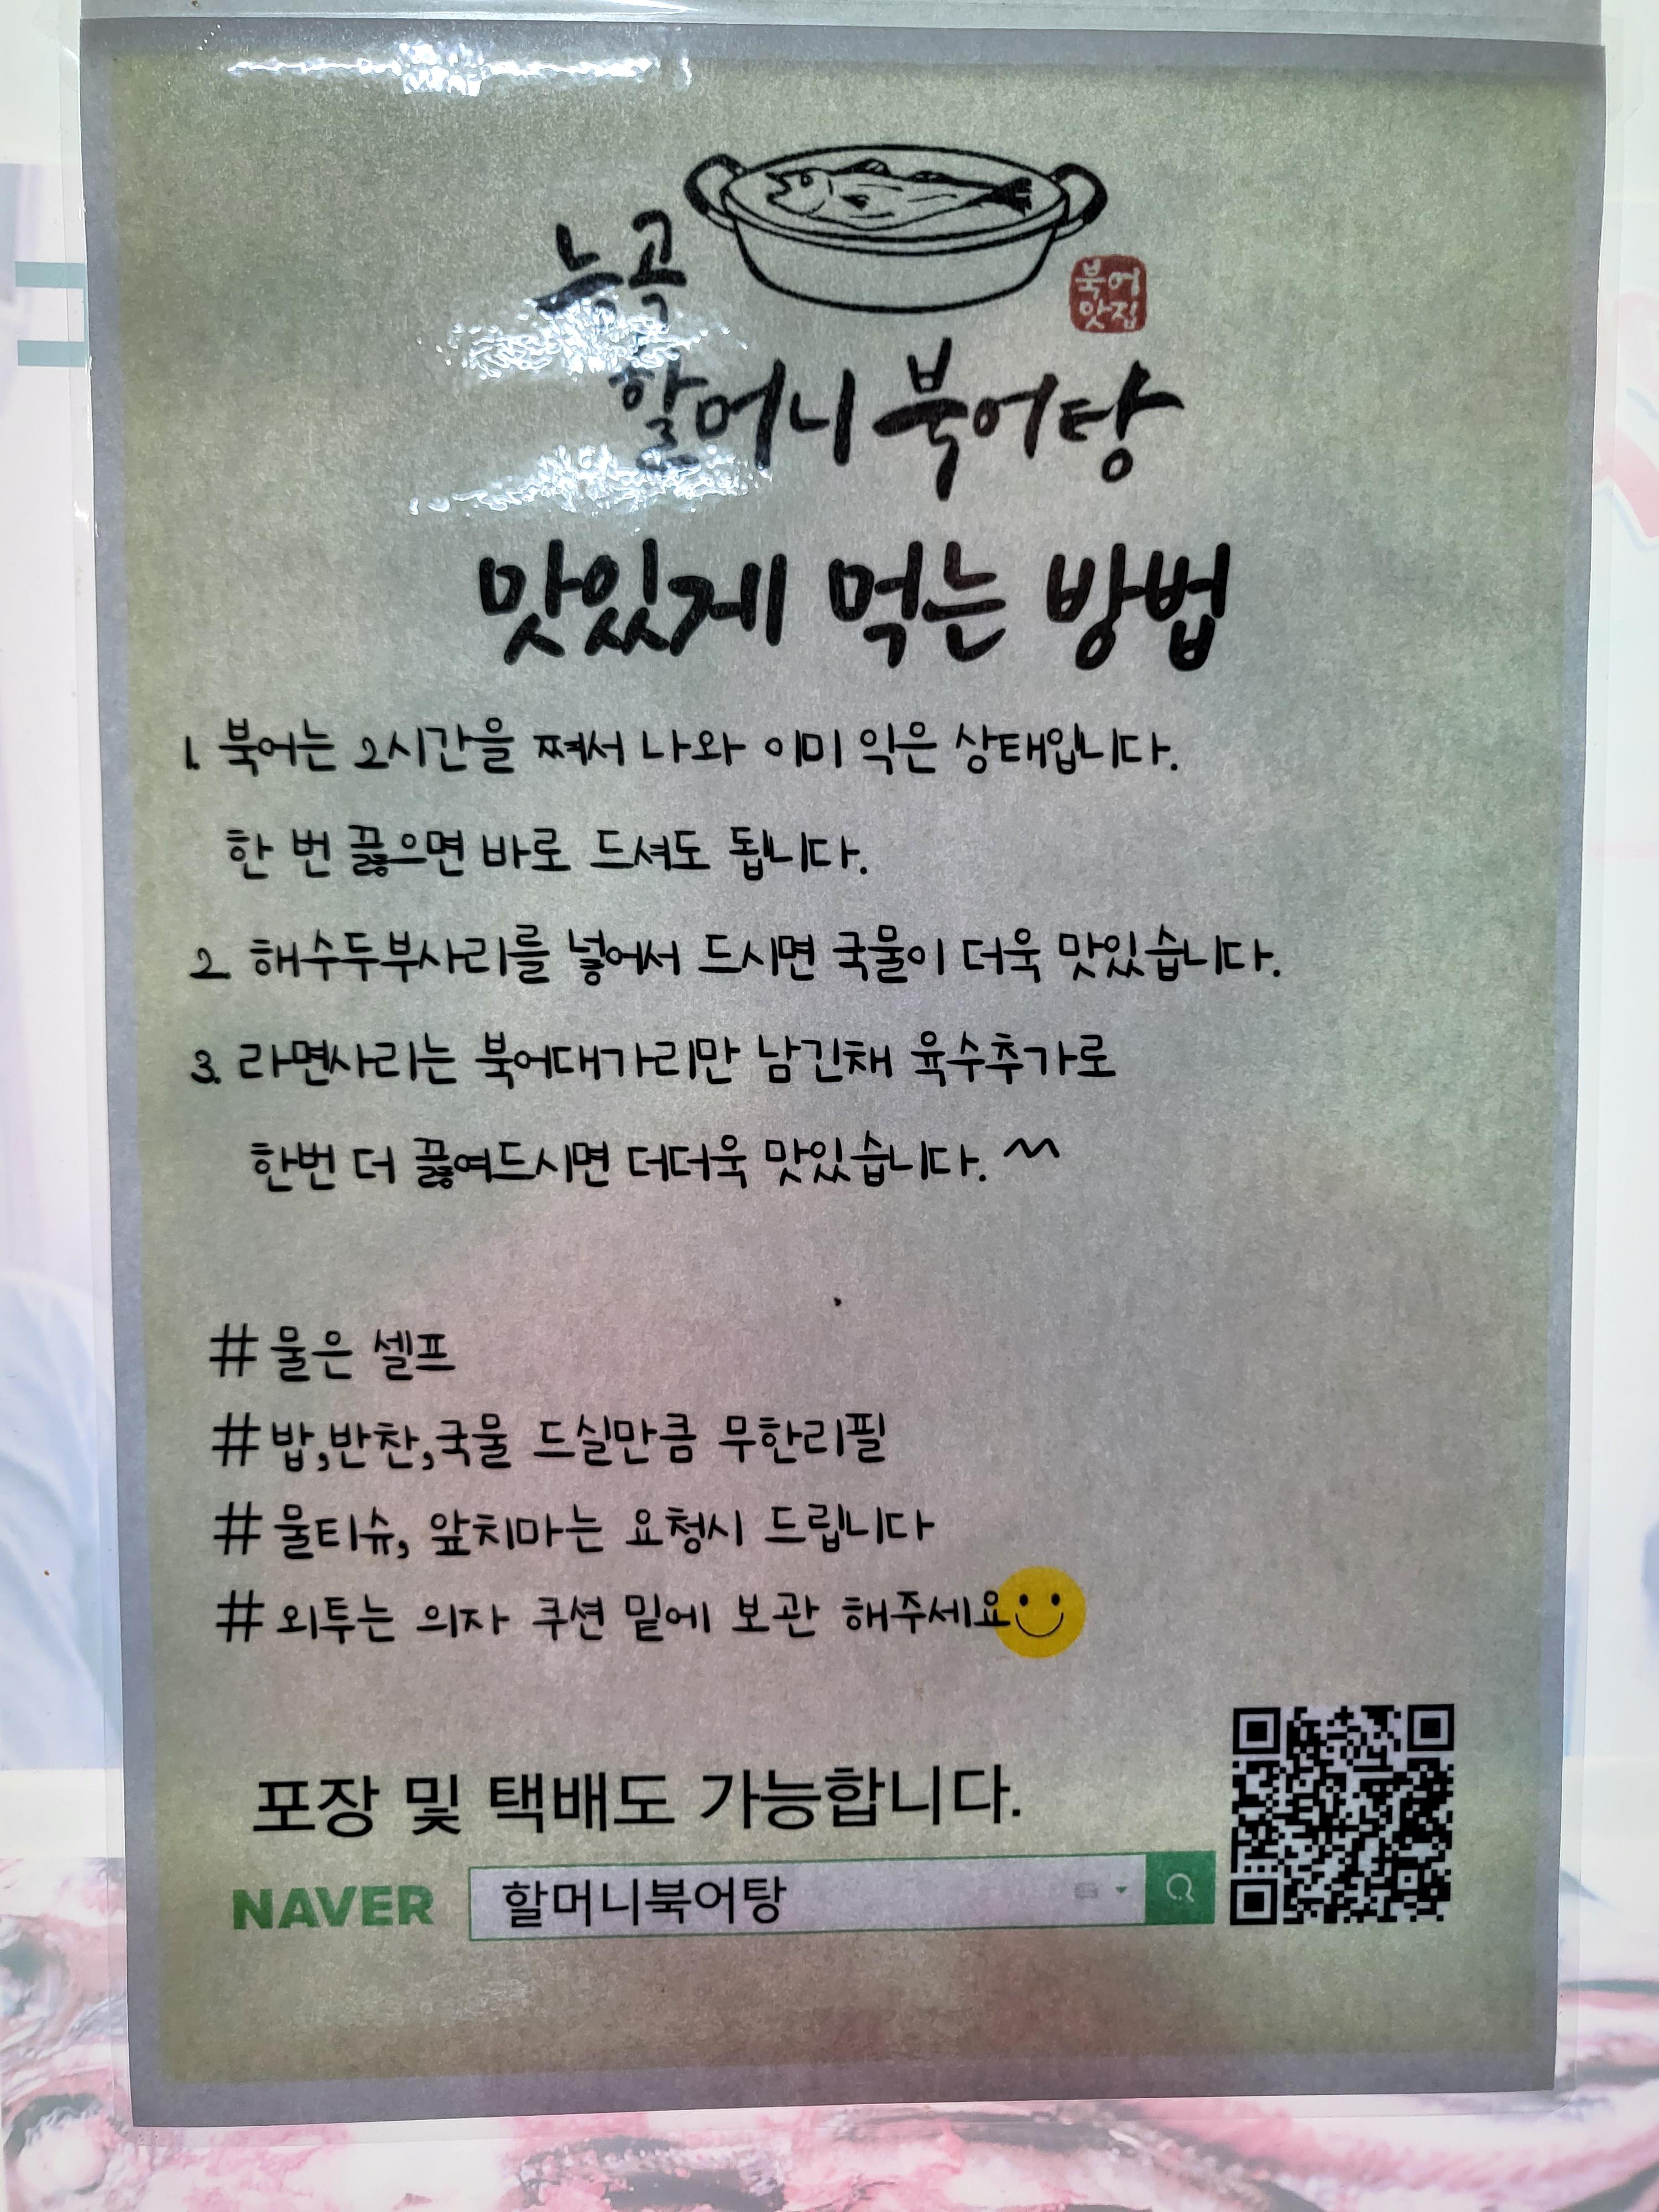 능곡
북어
맛집
할머니 북어탕
맛있게 먹는 방법
1. 북어는 2시간을 쪄서 나와 이미 익은 상태입니다.
한 번 끓으면 바로 드셔도 됩니다.
2. 해수두부사리를 넣어서 드시면 국물이 더욱 맛있습니다.
3. 라면사리는 북어대가리만 남긴채 육수추가로
한번 더 끓여드시면 더더욱 맛있습니다. ^^
# 물은 셀프
# 밥,반찬,국물 드실만큼 무한리필
# 물티슈, 앞치마는 요청시 드립니다
# 외투는 의자 쿠션 밑에 보관 해주세요
포장 및 택배도 가능합니다.
NAVER 할머니북어탕